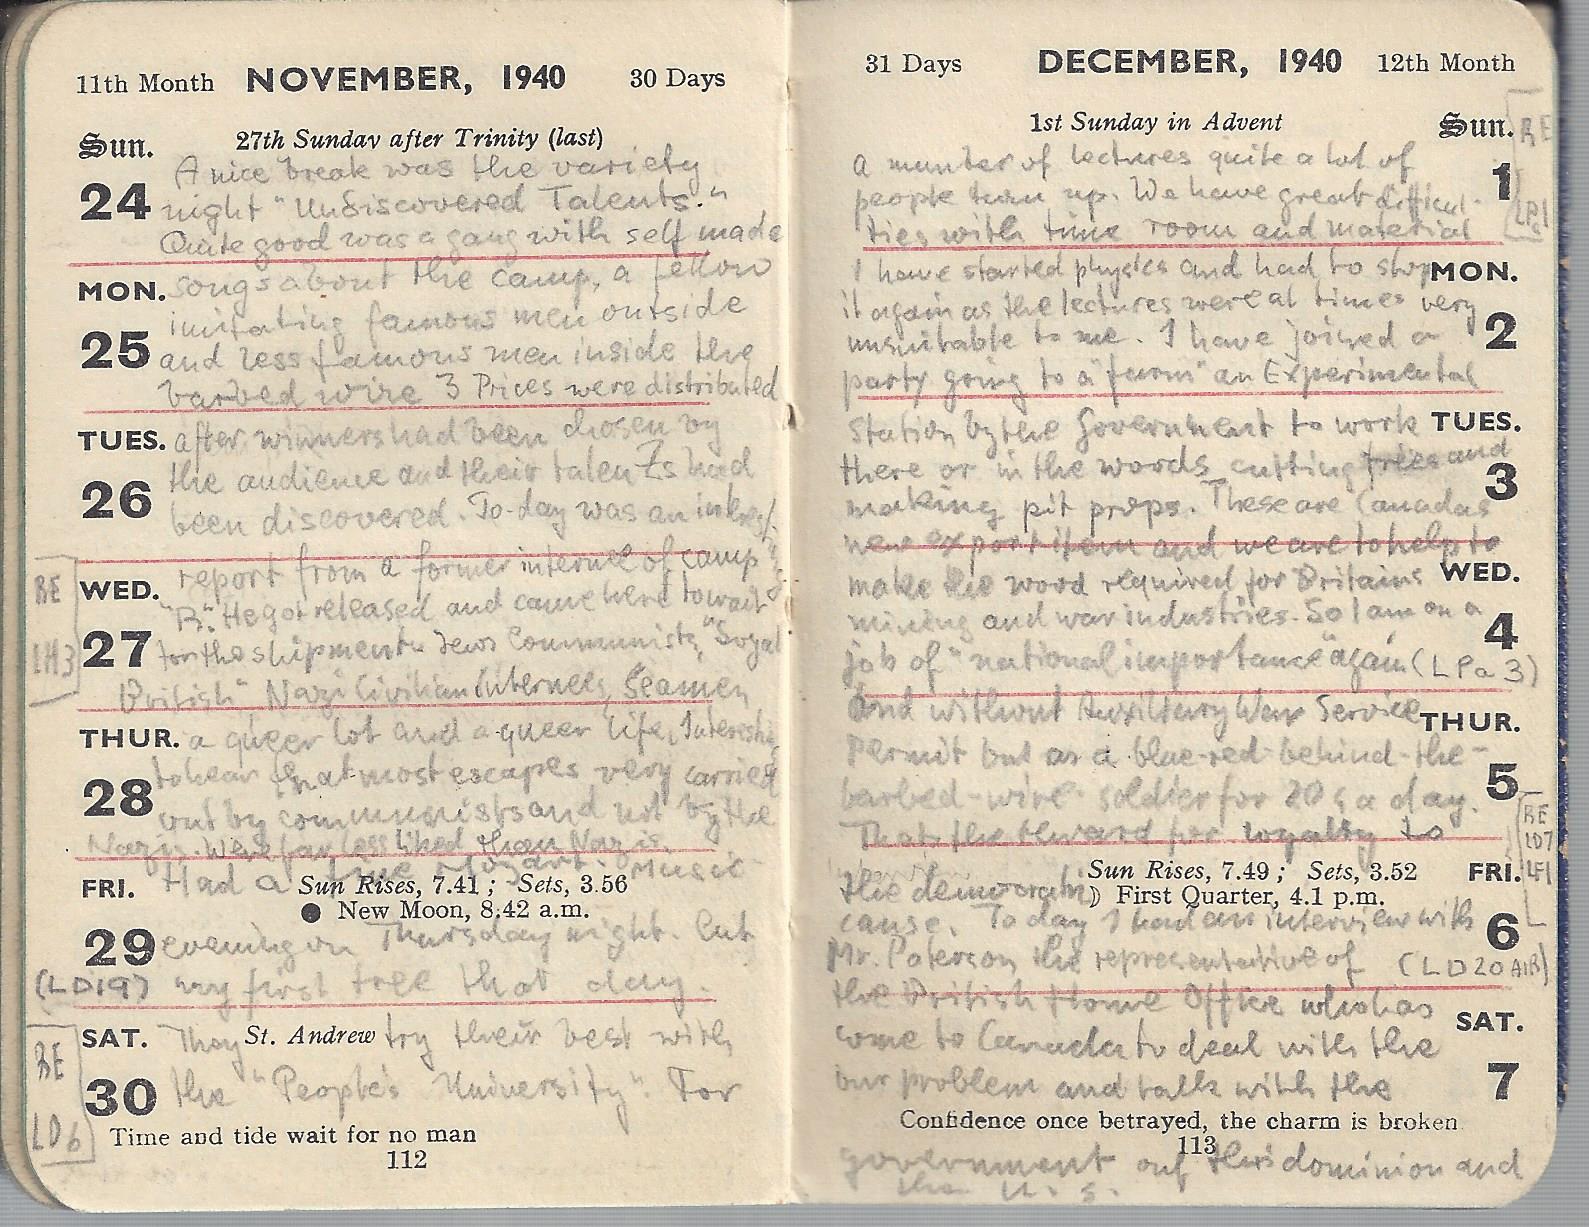 11th Month NOVEMBER, 1940 30 Days
Sun. 27th Sunday after Trinity (last)
24
A nice break was the variety
night "Undiscovered Talents."
Quite good was a gang with self made
MON.
25
songs about the camp, a fellow
imitating famous men outside
and less famous men inside the
barbed wire 3 Prices were distributed
TUES.
26
after winners had been chosen by
the audience and their talents had
been discovered. To-day was an
WED.
27
BE
LH3
report from a former internee of camp
"R". He got released and came here to wait
for the shipment. Jews Communists, "Loyal
British" Nazi Civilian Internees, Seamen,
THUR.
28
a queer lot and a queer life,
to hear that most escapes very carried
out by communists and not by the
Nazis. Were far less liked than Nazis.
FRI.
29
Had a fine Mozart. Music
Sun Rises, 7.41 ; Sets, 3.56
New Moon, 8.42 a.m.
evening on Thursday night. Cut
(LD19) my first tree that day.
SAT. St. Andrew
30
BE
LD6
They try their best with
the "People's University". For
Time and tide wait for no man
112
31 Days DECEMBER, 1940 12th Month
1st Sunday in Advent Sun.
1
BE
a number of lectures quite a lot of
people turn up. We have great difficul-
ties with time room and material
MON.
2
I have started physics and had to stop
it again as the lectures were at times very
unsuitable to me. I have joined a
party going to a "farm" an Experimental
TUES.
3
Station by the Government to work
there or in the woods cutting trees and
making pit props. These are Canadas
new export item and we are to help to
WED.
4
make the wood required for Britains
mining and war industries. So I am on a
job of "national importance" again (LPa 3)
THUR.
5
And without Auxiliary War Service
Permit but as a blue-red-behind-the-
barbed-wire soldier for 20 ¢ a day.
That the reward for loyalty to
FRI.
6
BE
LD7
LF1
Sun Rises, 7.49 ; Sets, 3.52
First Quarter, 4.1 p.m.
the
cause. To day I had an interview with
Mr. Paterson the representative of (LD20 AIR)
SAT.
7
the British Home Office who has
come to Canada to deal with the
our problem and talk with the
Confidence once betrayed, the charm is broken
113
government out this dominion and
the U. S.